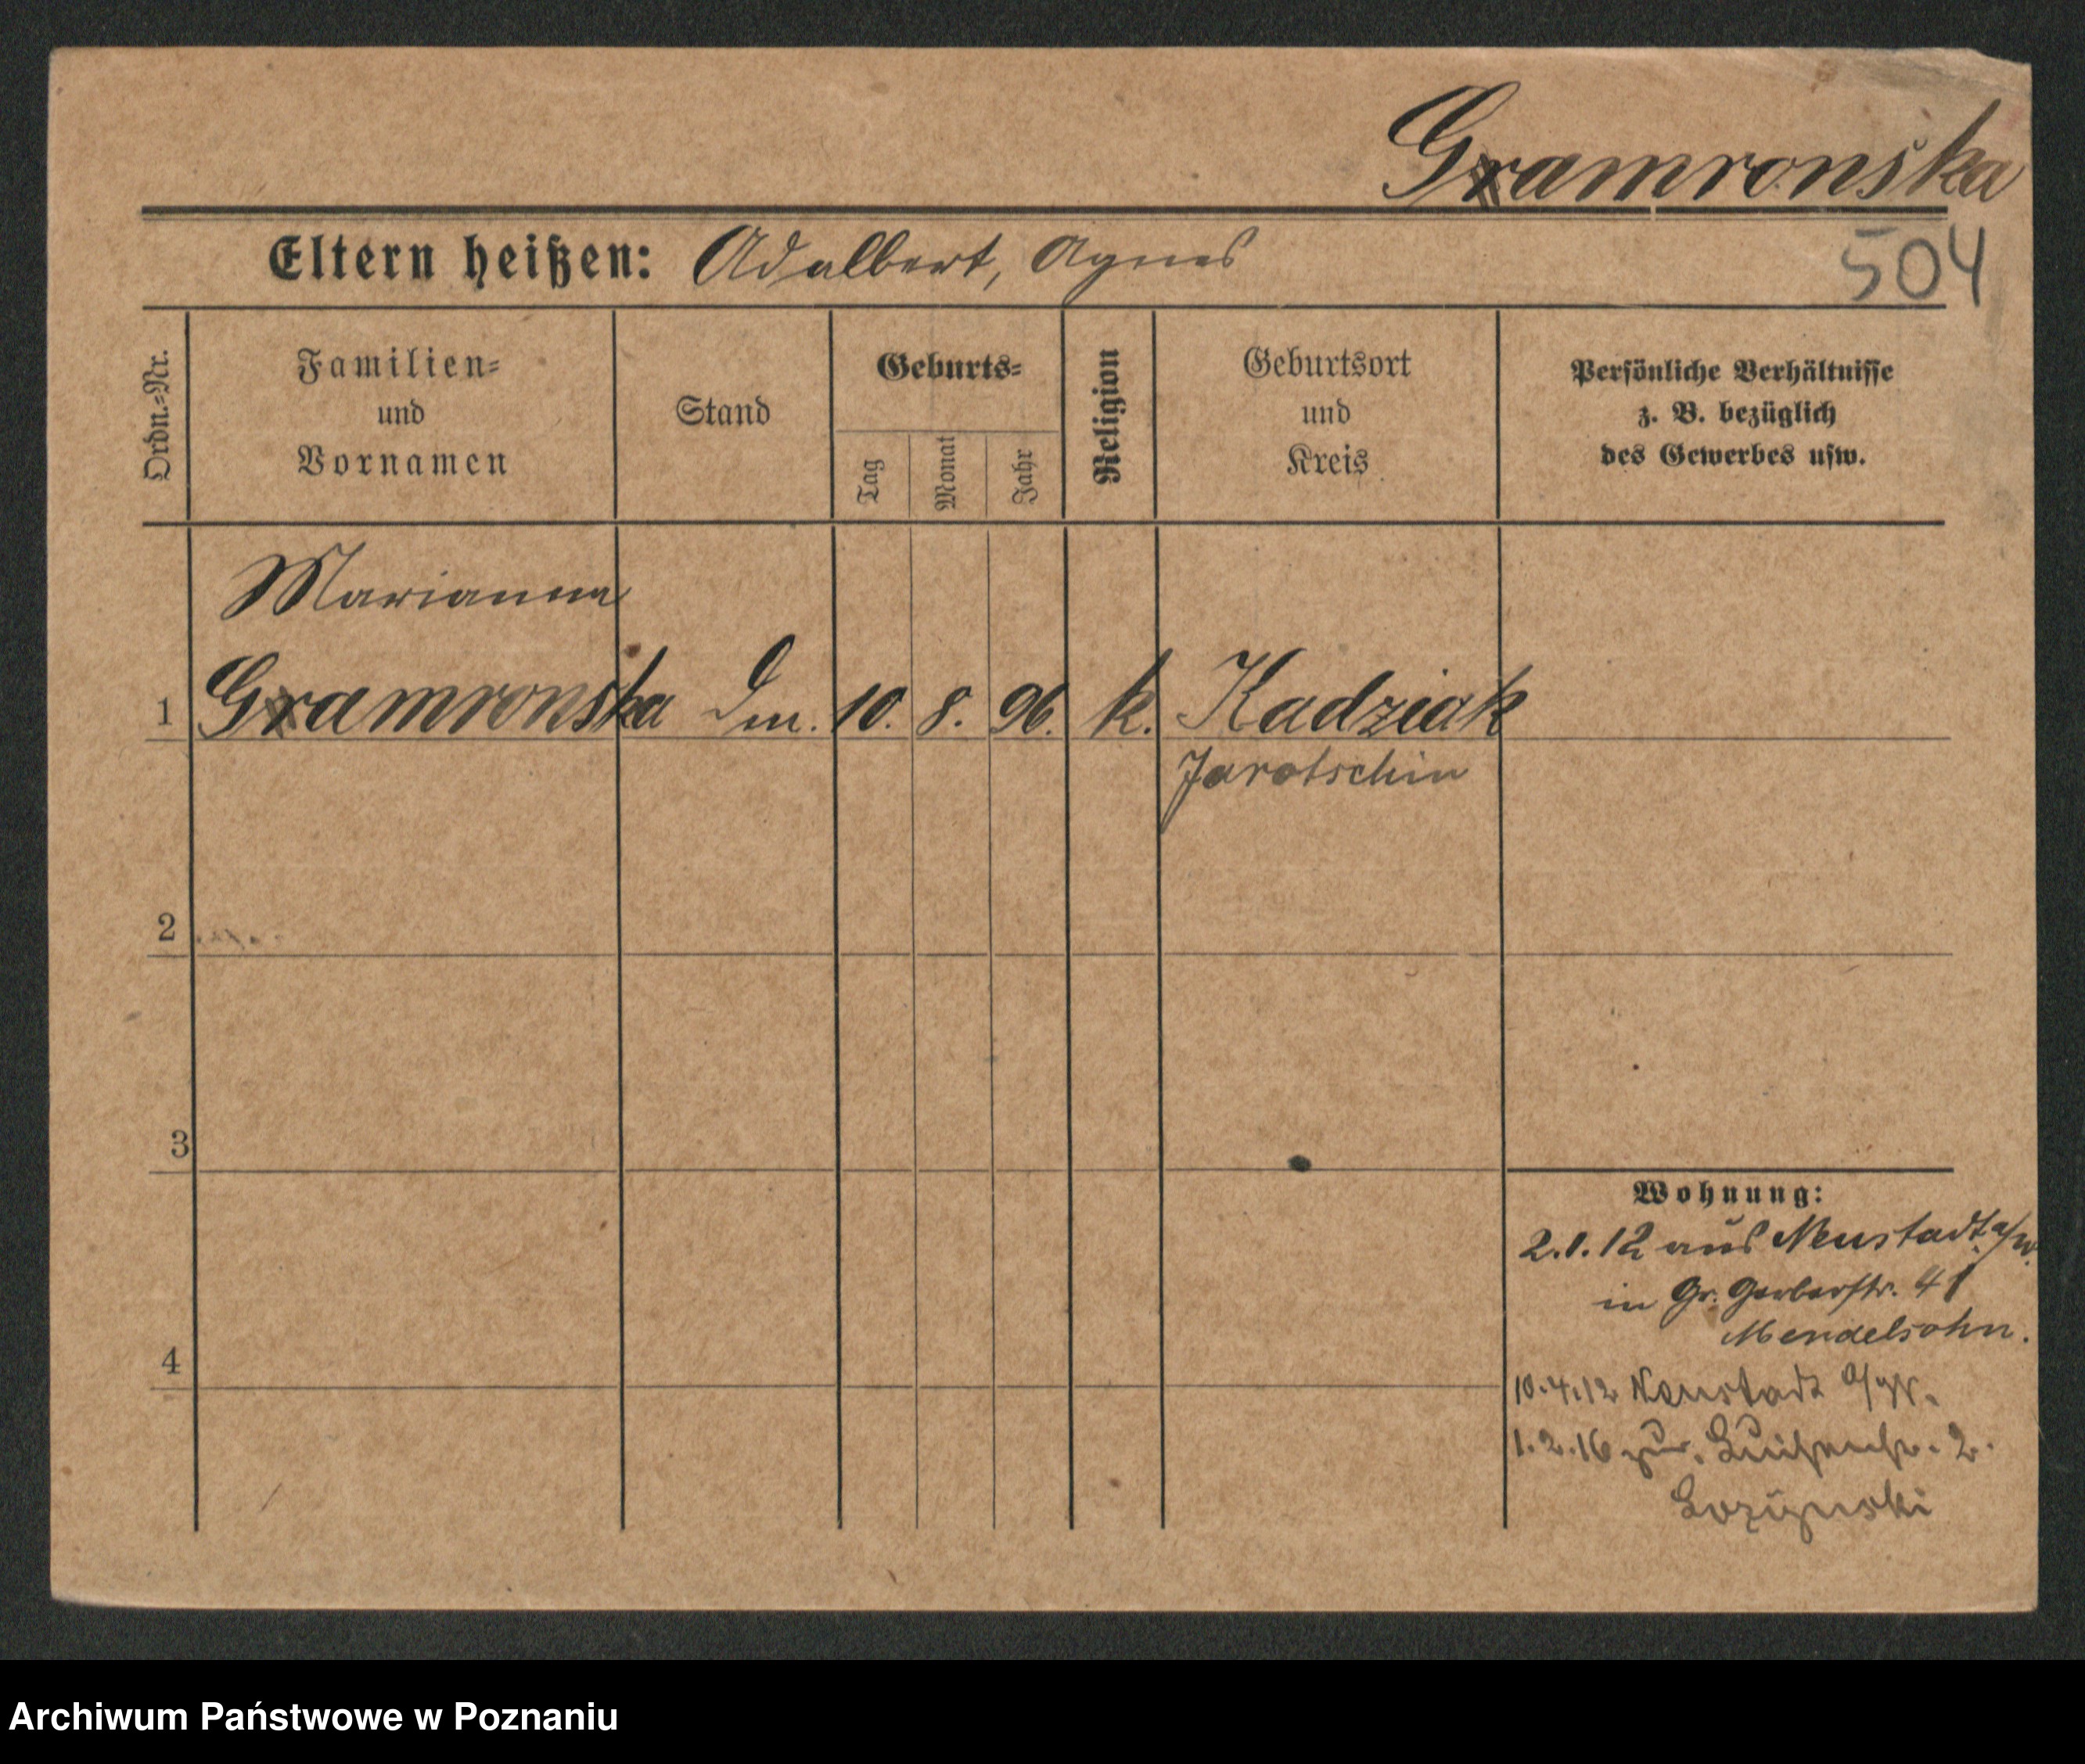 Gramronska
Eltern heißen: Adalbert, Agnes
504
Ordn.-Nr.
Familien-
und
Vornamen
Stand
Geburts-
Tag
Monat
Jahr
Religion
Geburtsort
und
Kreis
Persönliche Verhältnisse
z. B. bezüglich
des Gewerbes usw.
Marianna
1 Gramronska 10. 8. 96. k. Kadziak
Jarotschin
2
3
4
Wohnung:
2.1.12 aus Neustadt a/W.
in Gr. Gerberstr. 41
Mendelsohn.
10.4.12 Neustadt a/W.
1.2.16 zur. Luisenstr. 2.
Archiwum Państwowe w Poznaniu